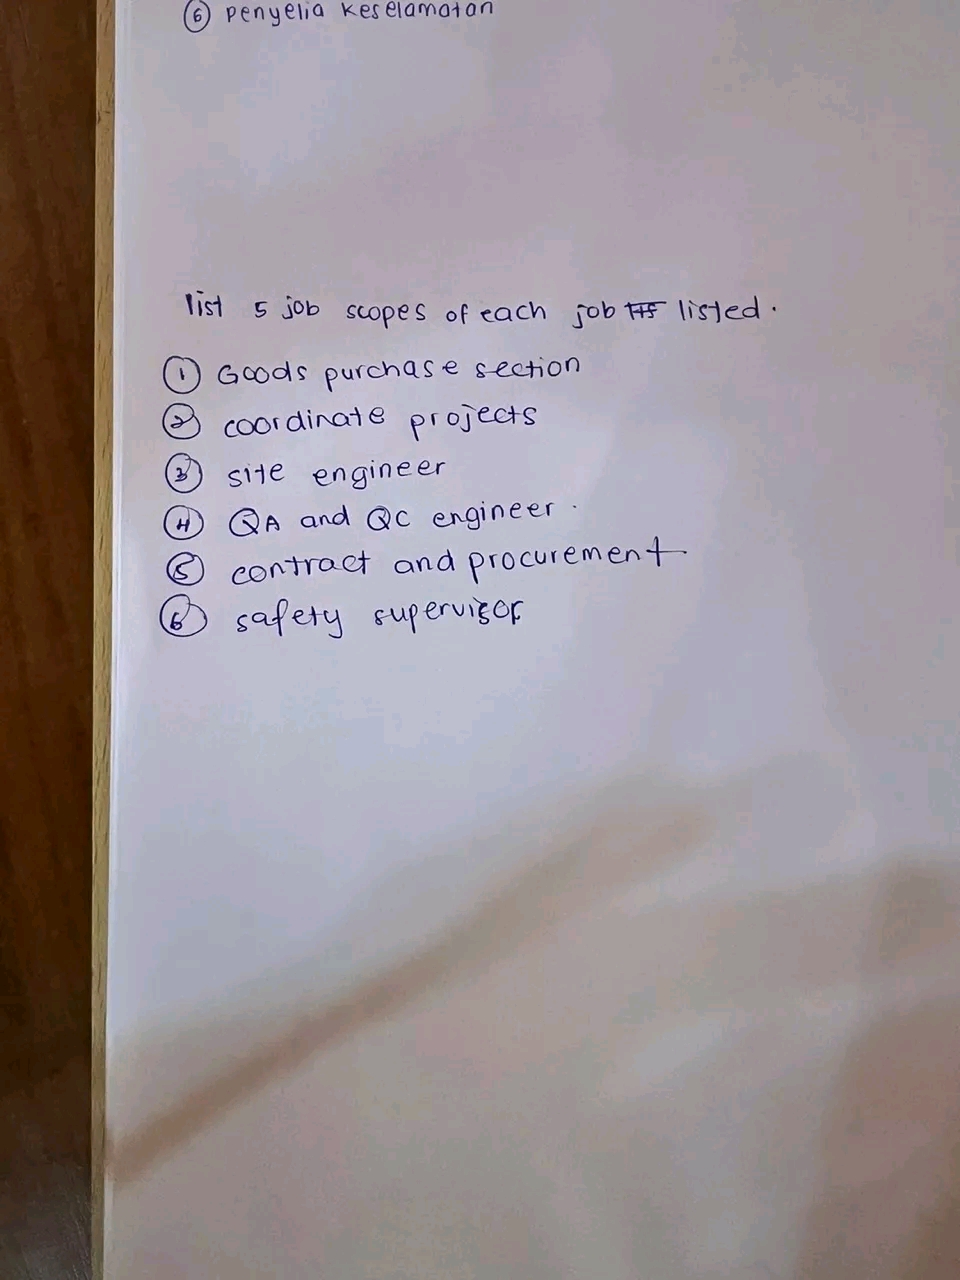 ⑥ Penyelia Keselamatan
list 5 job scopes of each job listed.
① Goods purchase section
② coordinate projects
③ site engineer
④ QA and QC engineer.
⑤ contract and procurement
⑥ safety supervisor